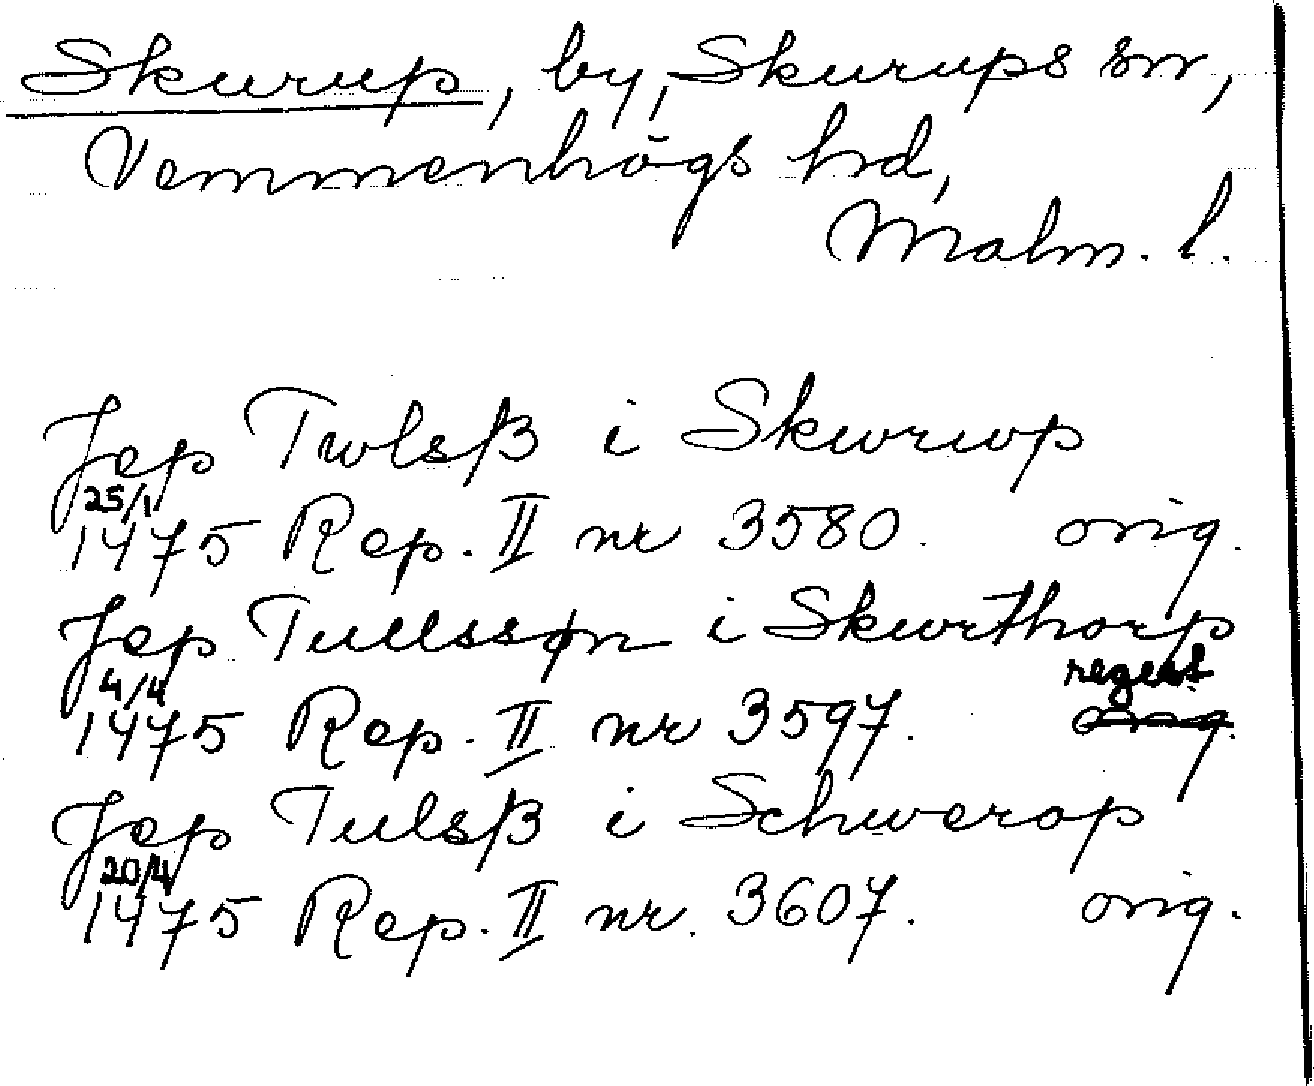 Skurup, by, Skurups sn,
Vemmenhögs hd,
Malm. l.
Jep Twlsß i Skwrwp
25/1
1475 Rep. II nr 3580. orig.
Jep Tullssøn i Skwrthorp
4/4 regest
1475 Rep. II nr 3597. orig.
Jep Tulsß i Schwerop
20/4
1475 Rep. II nr. 3607. orig.